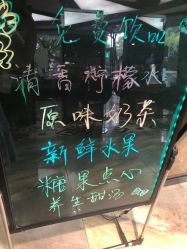 免费饮品
清香柠檬水
原味奶茶
新鲜水果
糖果点心
养生甜汤